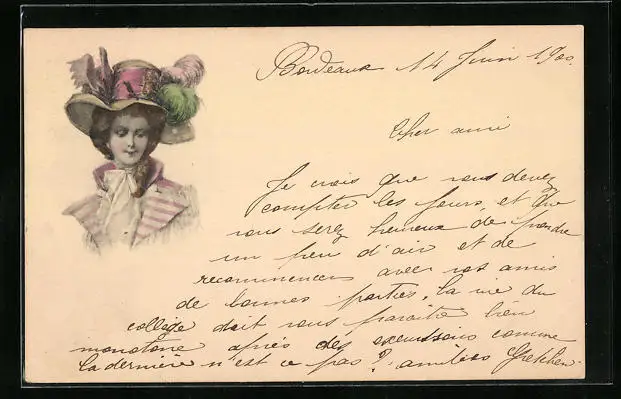 Bordeaux 14 Juin 1900
Cher ami
Je crois que vous devez
compter les jours, et que
vous serez heureux de prendre
un peu d'air et de
recommencer avec vos amis
de bonnes parties, la vie du
collège doit vous paraître bien
monotone après des excursions comme
la dernière n'est ce pas? amitiés Gretchen